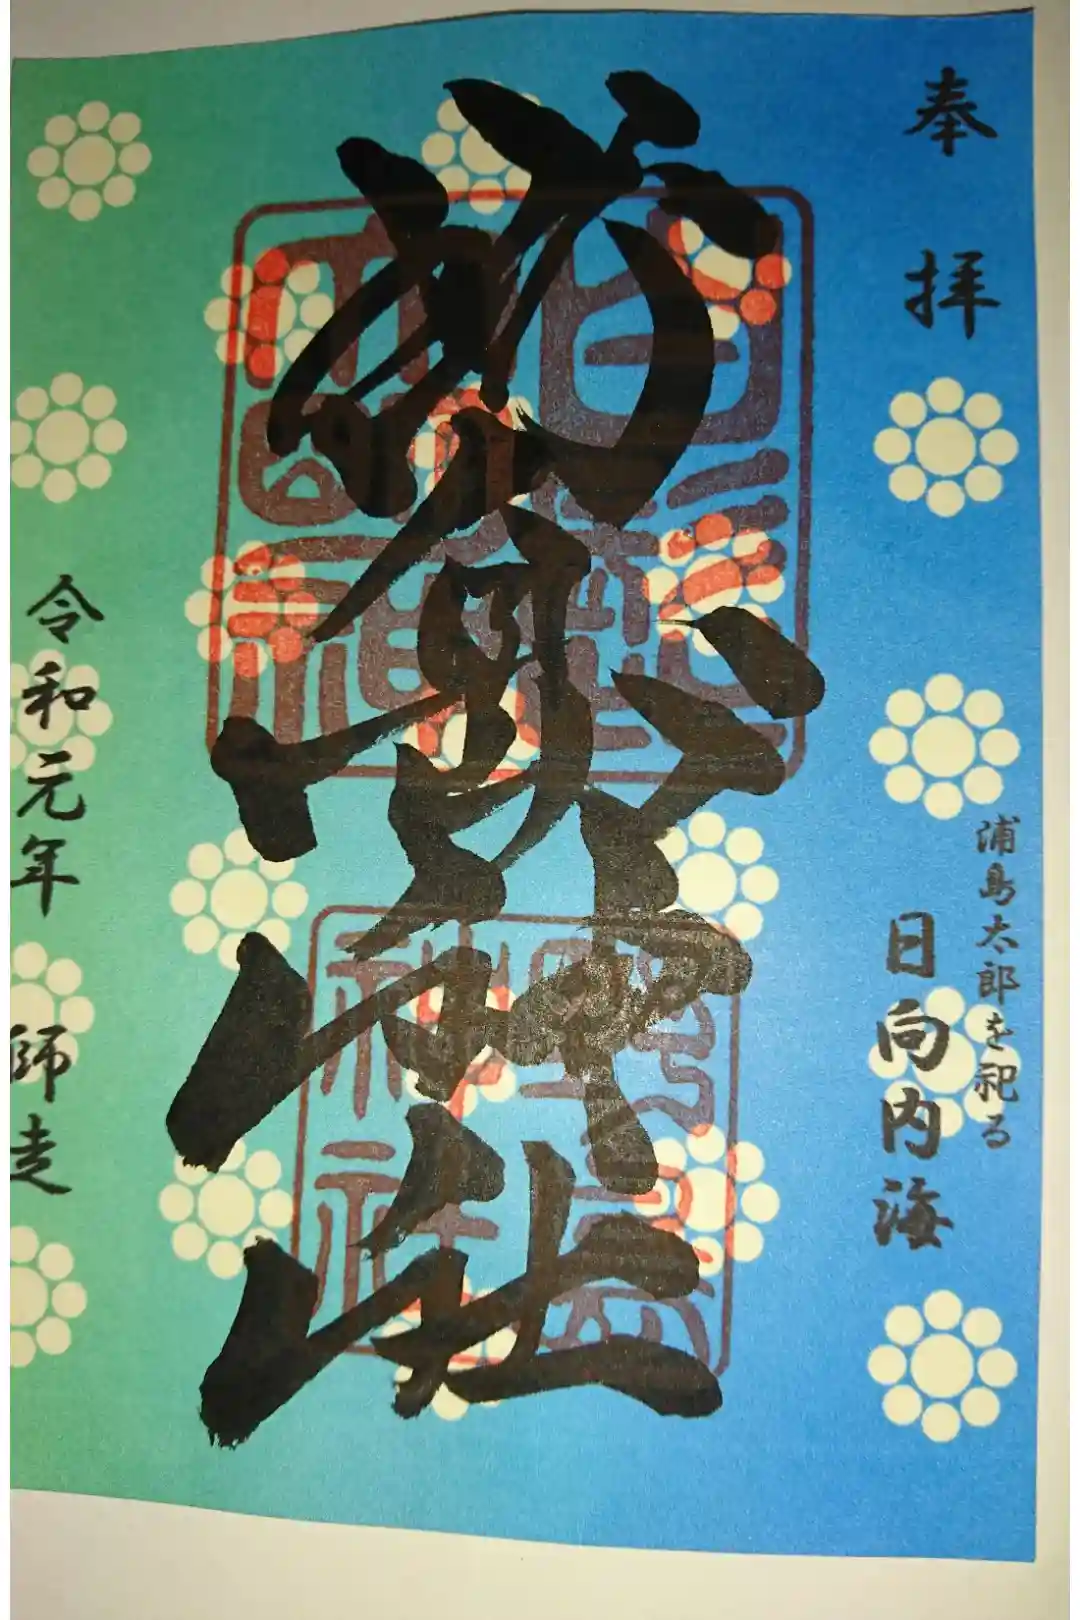 奉拝
浦島太郎を祀る
日向内海
野島神社
令和元年 師走